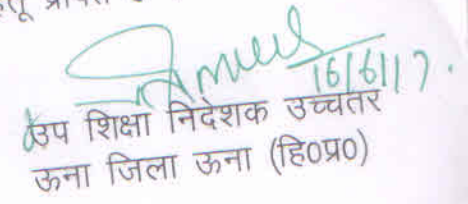 हेतू
16/6/17.
उप शिक्षा निदेशक उच्चतर
ऊना जिला ऊना (हि०प्र०)